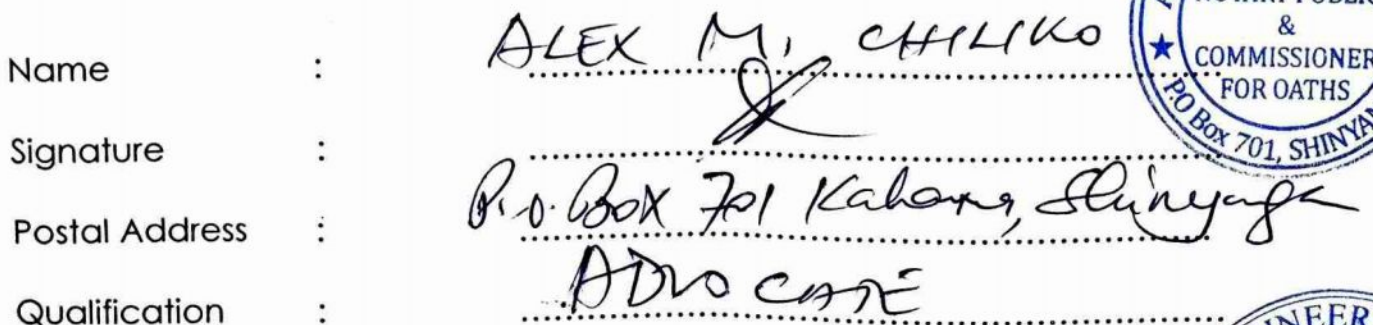 Name : ALEX M. CHILIKO
Signature :
Postal Address : P.O. Box 701 Kahama, Shinyanga
Qualification : ADVOCATE
&
COMMISSIONER
FOR OATHS
P.O Box 701, SHINYAN
NEER